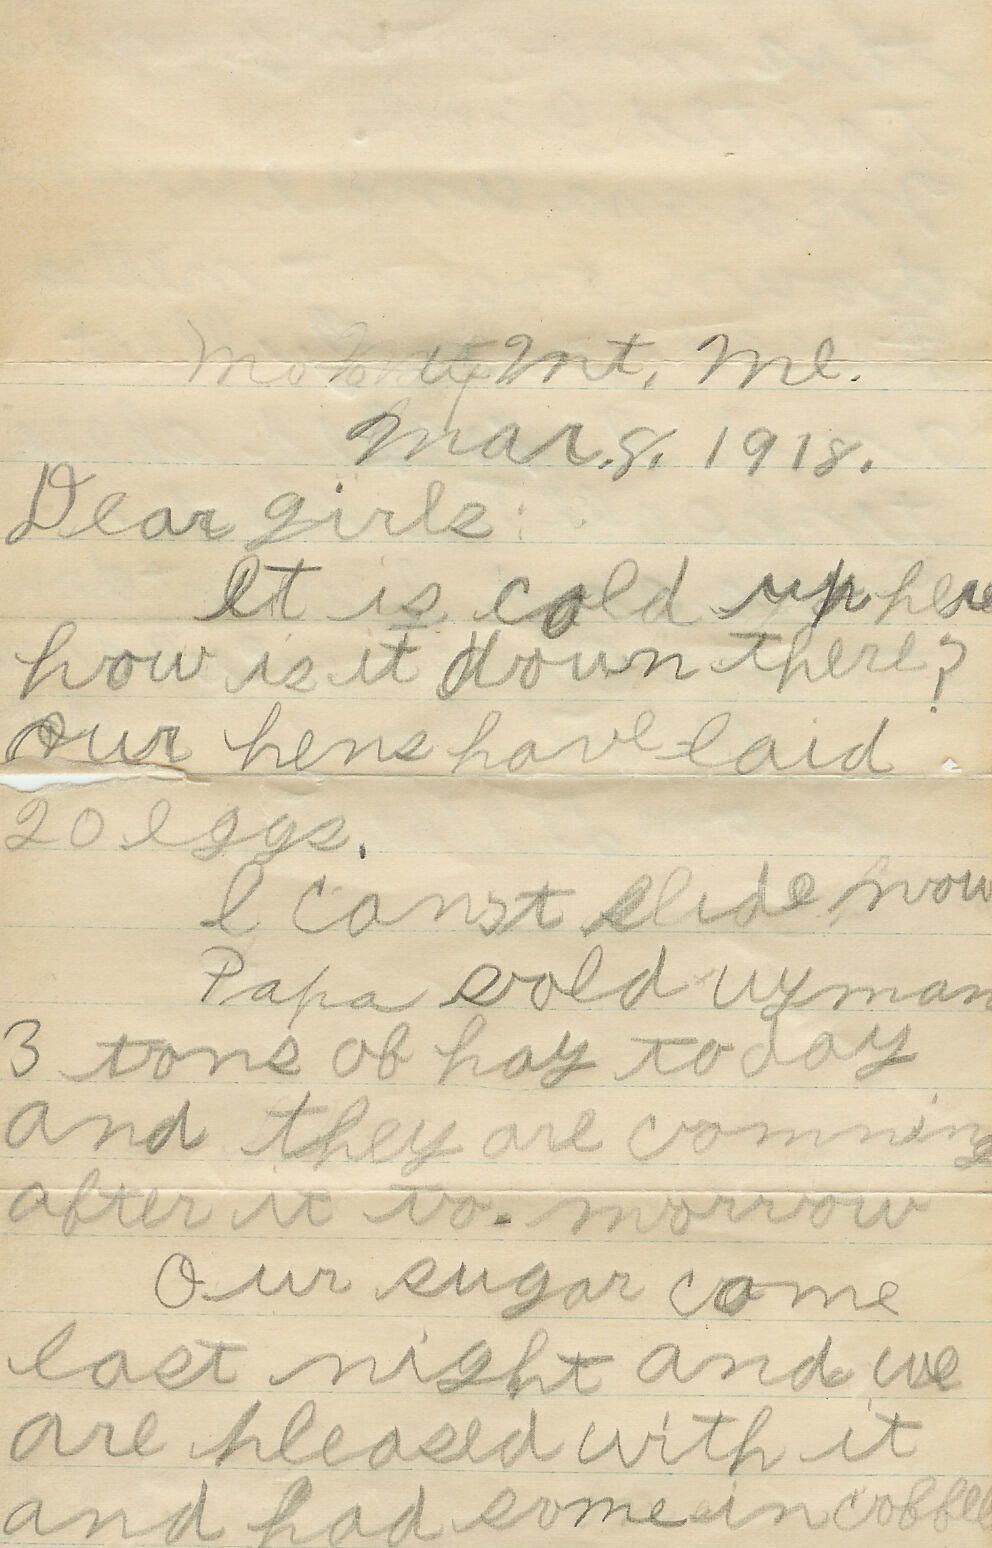 Mt, Me.
Mar. 8. 1918.
Dear girls:
It is cold up here
how is it down there?
Our hens have laid
20 eggs.
I can't slide now
Papa sold Wyman
3 tons of hay today
and they are comning
after it to-morrow
Our sugar come
last night and we
are pleased with it
and had some in coffee